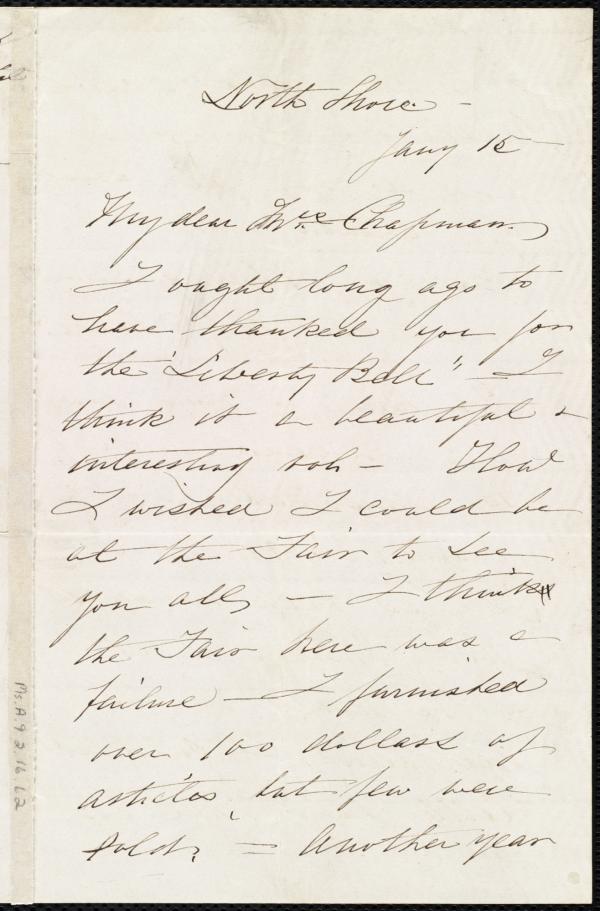 North Shore. -
Jany 15
My dear Mrs. Chapman.
I ought long ago to
have thanked you for
the "Liberty Bell" - I
think it a beautiful &
interesting vol - How
I wished I could be
at the Fair to see
you all, - I think
the Fair here was a
failure - I furnished
over 100 dollars of
articles, but few were
sold, = Another year
Ms. A. 9. 2. 16. 62